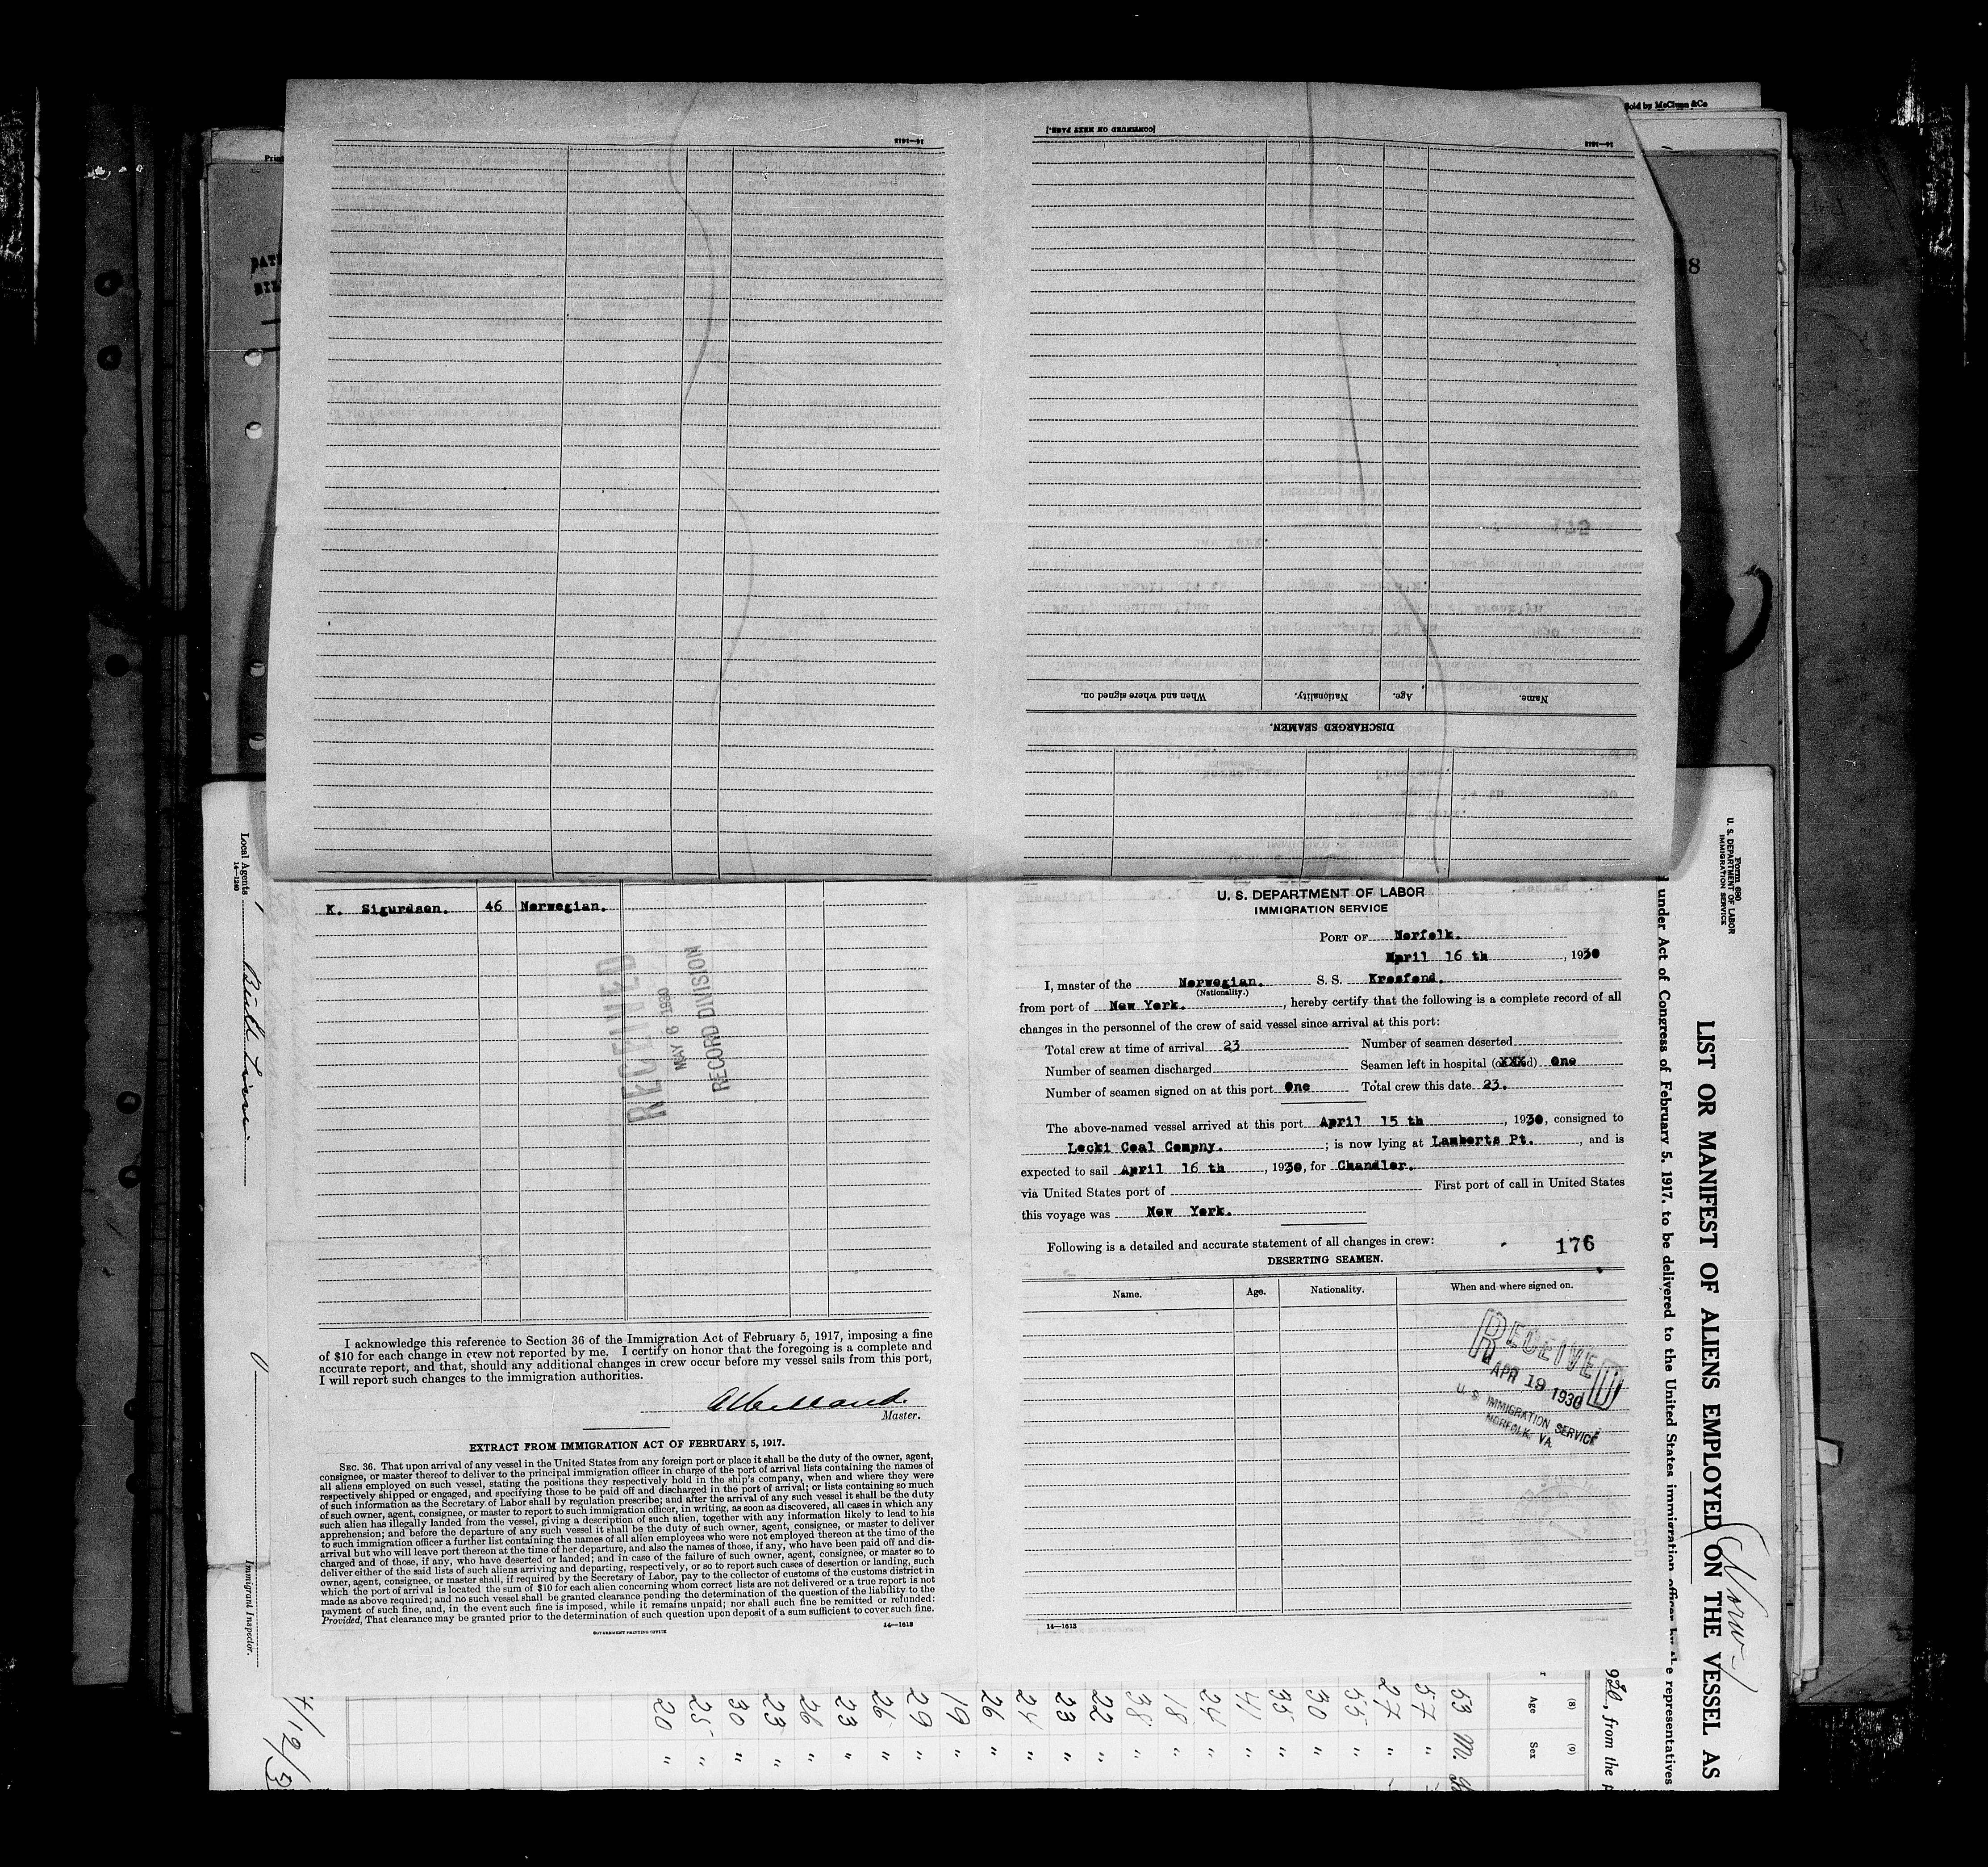 Sold by McClunn &Co
[CONTINUED ON NEXT PAGE.]
14—1613
14—1613
When and where signed on.
Nationality.
Age.
Name.
DISCHARGED SEAMEN.
K. Sigurdsen. 46 Norwegian.
RECEIVED
MAY 6 1930
RECORD DIVISION
I acknowledge this reference to Section 36 of the Immigration Act of February 5, 1917, imposing a fine
of $10 for each change in crew not reported by me. I certify on honor that the foregoing is a complete and
accurate report, and that, should any additional changes in crew occur before my vessel sails from this port,
I will report such changes to the immigration authorities.
Master.
EXTRACT FROM IMMIGRATION ACT OF FEBRUARY 5, 1917.
SEC. 36. That upon arrival of any vessel in the United States from any foreign port or place it shall be the duty of the owner, agent,
consignee, or master thereof to deliver to the principal immigration officer in charge of the port of arrival lists containing the names of
all aliens employed on such vessel, stating the positions they respectively hold in the ship's company, when and where they were
respectively shipped or engaged, and specifying those to be paid off and discharged in the port of arrival; or lists containing so much
of such information as the Secretary of Labor shall by regulation prescribe; and after the arrival of any such vessel it shall be the duty
of such owner, agent, consignee, or master to report to such immigration officer, in writing, as soon as discovered, all cases in which any
such alien has illegally landed from the vessel, giving a description of such alien, together with any information likely to lead to his
apprehension; and before the departure of any such vessel it shall be the duty of such owner, agent, consignee, or master to deliver
to such immigration officer a further list containing the names of all alien employees who were not employed thereon at the time of the
arrival but who will leave port thereon at the time of her departure, and also the names of those, if any, who have been paid off and dis-
charged and of those, if any, who have deserted or landed; and in case of the failure of such owner, agent, consignee, or master so to
deliver either of the said lists of such aliens arriving and departing, respectively, or so to report such cases of desertion or landing, such
owner, agent, consignee, or master shall, if required by the Secretary of Labor, pay to the collector of customs of the customs district in
which the port of arrival is located the sum of $10 for each alien concerning whom correct lists are not delivered or a true report is not
made as above required; and no such vessel shall be granted clearance pending the determination of the question of the liability to the
payment of such fine, and, in the event such fine is imposed, while it remains unpaid; nor shall such fine be remitted or refunded:
Provided, That clearance may be granted prior to the determination of such question upon deposit of a sum sufficient to cover such fine.
GOVERNMENT PRINTING OFFICE
14—1613
U. S. DEPARTMENT OF LABOR
IMMIGRATION SERVICE
PORT OF Norfolk.
April 16 th, 1930
I, master of the Norwegian. S. S. Krosfond.
(Nationality.)
from port of New York., hereby certify that the following is a complete record of all
changes in the personnel of the crew of said vessel since arrival at this port:
Total crew at time of arrival 23
Number of seamen deserted
Number of seamen discharged
Seamen left in hospital (oXXXd) One
Number of seamen signed on at this port One
Total crew this date 23.
The above-named vessel arrived at this port April 15 th, 1930, consigned to
Locki Coal Compny.; is now lying at Lamberts Pt., and is
expected to sail April 16 th, 1930, for Chandler.
via United States port of First port of call in United States
this voyage was New York.
Following is a detailed and accurate statement of all changes in crew:
176
DESERTING SEAMEN.
Name. Age. Nationality. When and where signed on.
RECEIVED
APR 19 1930
U. S. IMMIGRATION SERVICE
NORFOLK, VA.
14—1613
Local Agents
14—1240
Immigrant Inspector.
Form 680
U. S. DEPARTMENT OF LABOR
IMMIGRATION SERVICE
LIST OR MANIFEST OF ALIENS EMPLOYED ON THE VESSEL AS
under Act of Congress of February 5, 1917, to be delivered to the United States immigration officer by the representatives
(Norw.)
930, from the p
(8) (9)
Age Sex
53 m.
57 "
27 "
55 "
30 "
35 "
41 "
24 "
18 "
38 "
22 "
23 "
24 "
26 "
19 "
29 "
26 "
23 "
26 "
23 "
30 "
25 "
20 "